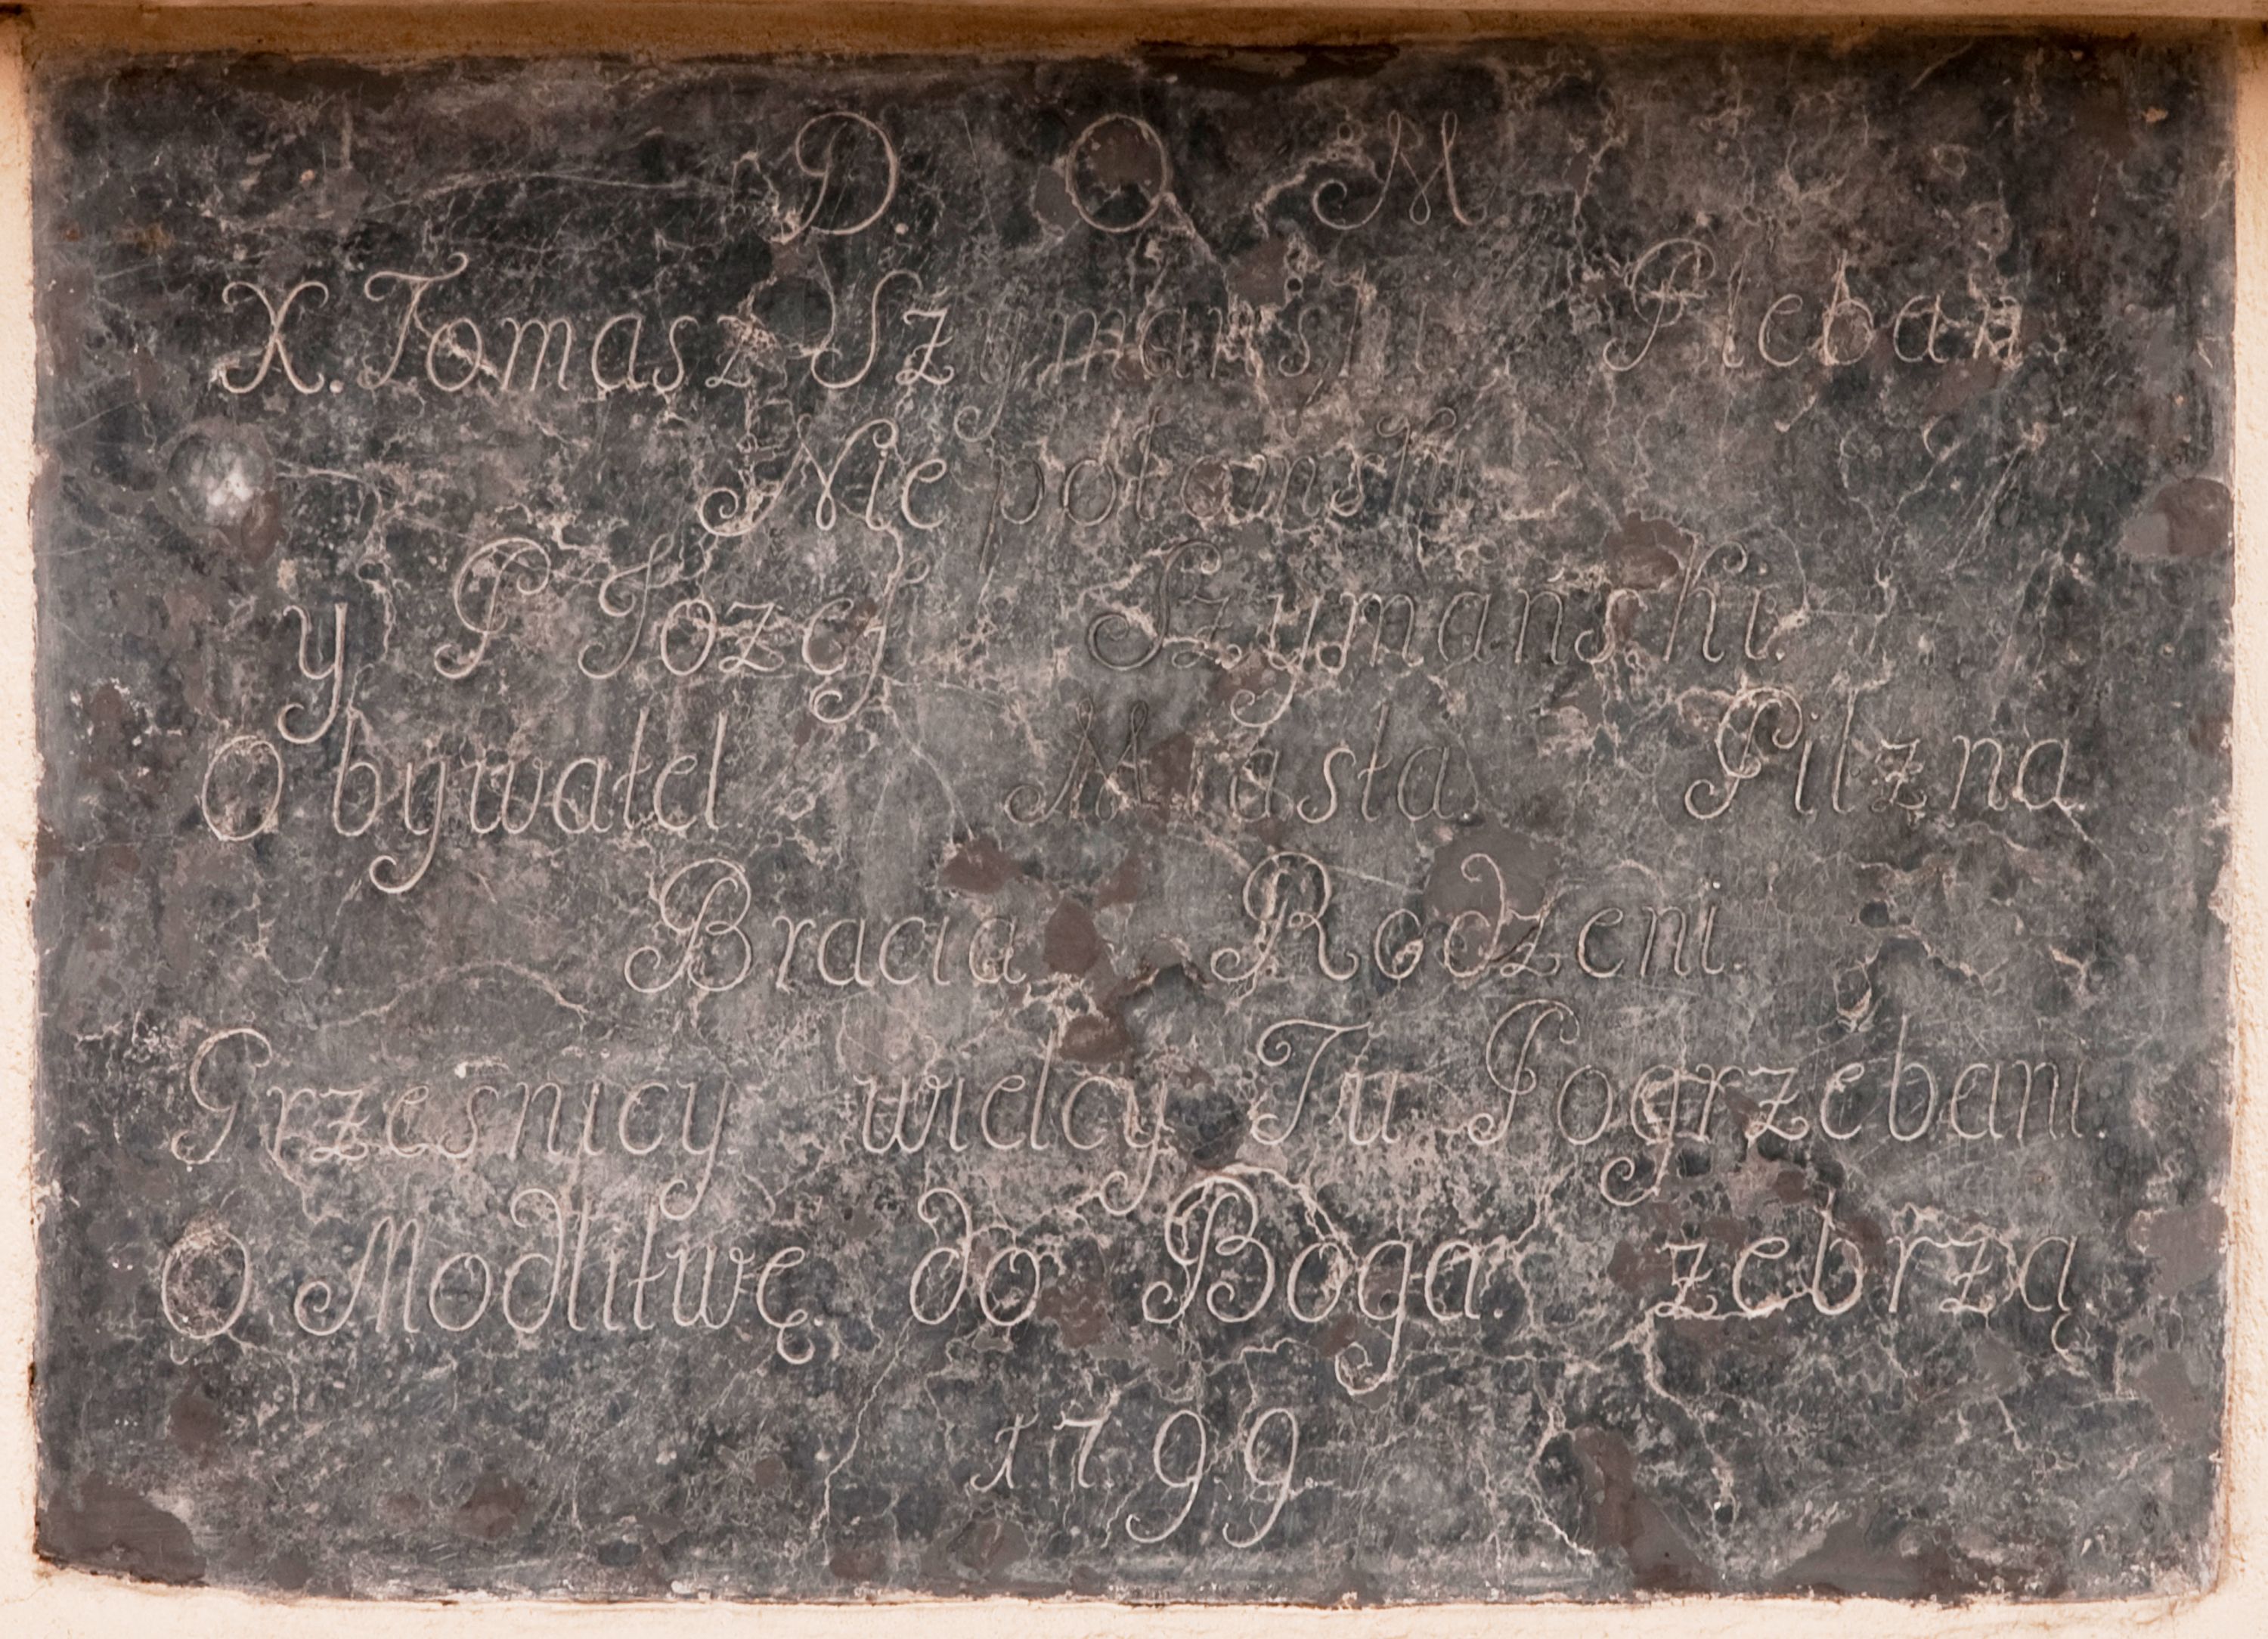 D O M
X. Tomasz Szymanski Pleban
Niepołomski
y P Jozef Szymanski.
Obywatel Miasta Pilzna
Bracia Rodzeni.
Grześnicy wielcy Tu Pogrzebani.
O Modlitwę do Boga. zebrzą
1799